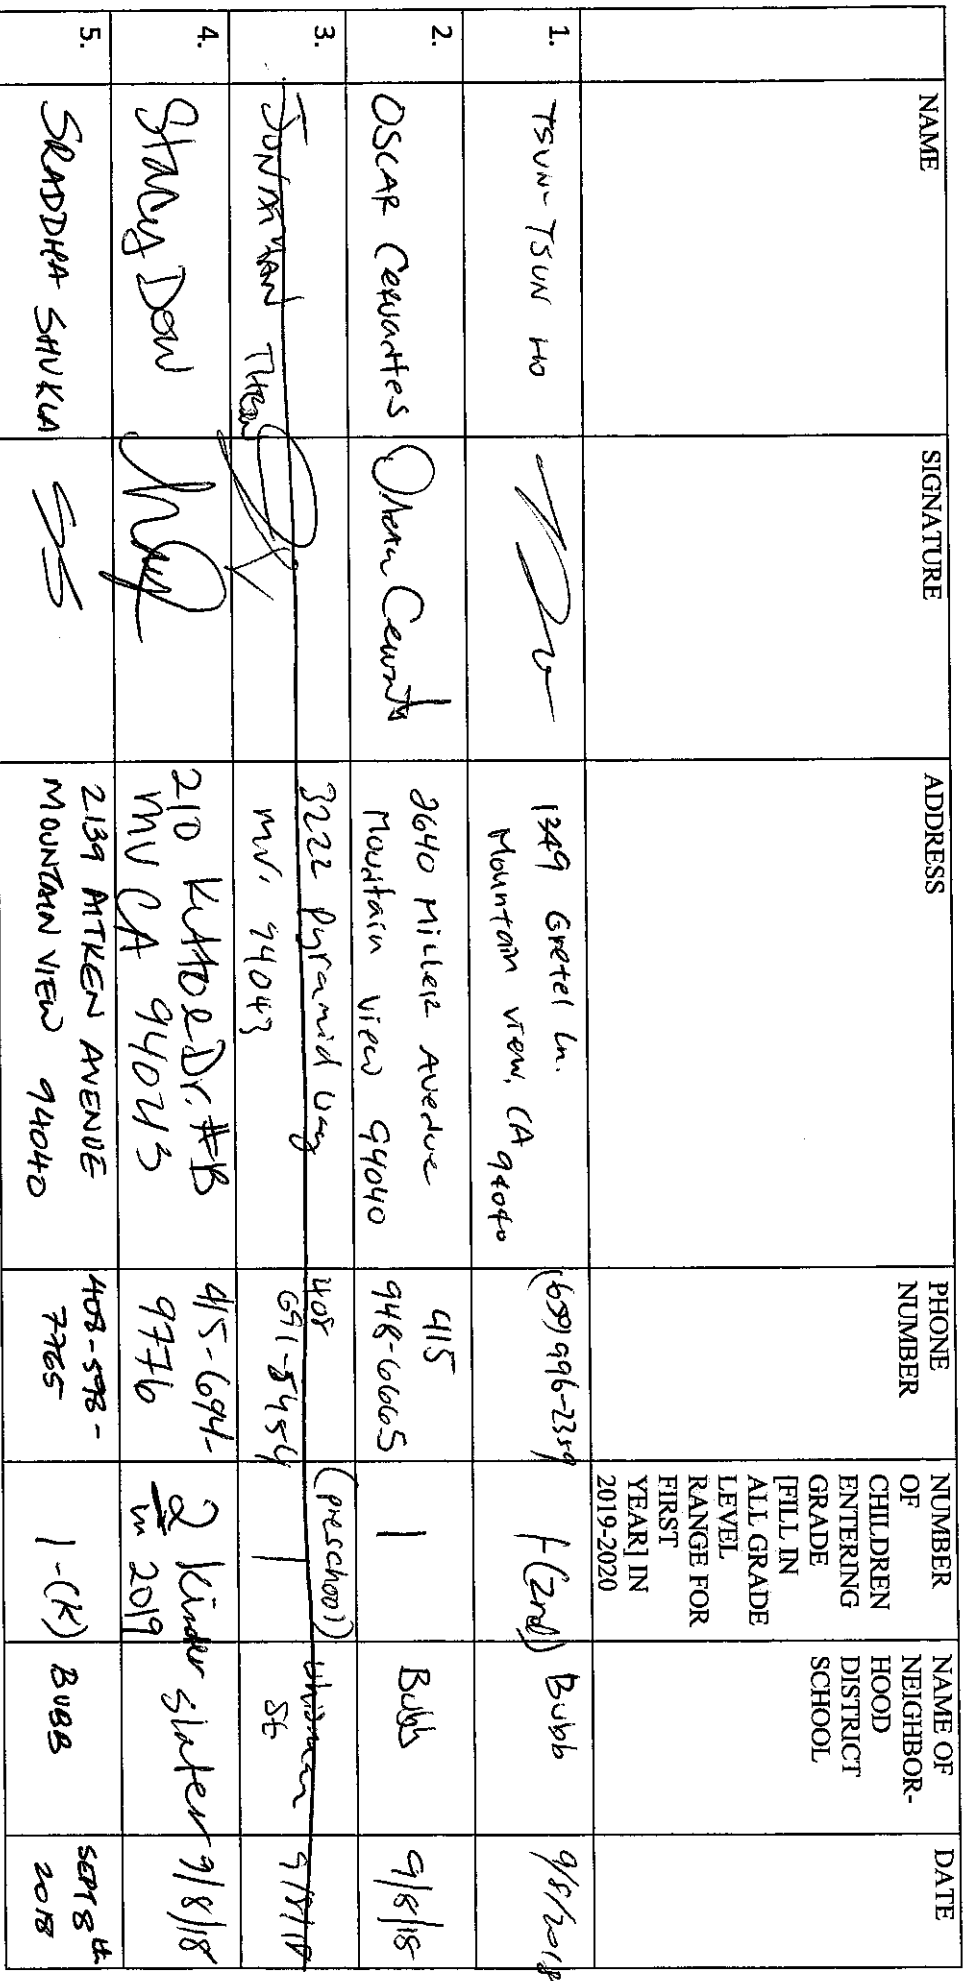 NAME
SIGNATURE
ADDRESS
PHONE
NUMBER
NUMBER
OF
CHILDREN
ENTERING
GRADE
[FILL IN
ALL GRADE
LEVEL
RANGE FOR
FIRST
YEAR] IN
2019-2020
NAME OF
NEIGHBOR-
HOOD
DISTRICT
SCHOOL
DATE
1.
TSUN-TSUN HO
1349 Gretel Ln.
Mountain view, CA 94040
996-2359
1 (2nd)
Bubb
9/8/2018
2.
OSCAR Cervantes
Cervantes
2640 Miller Avenue
Mountain View 94040
415
948-6665
1
Bubb
9/8/18
3.
3222 Pyramid Way
MV. 94043
408
691-5454
(preschool)
1
St
9/8/18
4.
Stacy Dow
210 Kittoe Dr. #B
MV CA 94043
415-694-
9776
2 Kinder
in 2019
Slater
9/8/18
5.
SRADDHA SHUKLA
SS
2139 AITKEN AVENUE
MOUNTAIN VIEW 94040
408-598-
7765
1-(K)
BUBB
SEPT 8th
2018